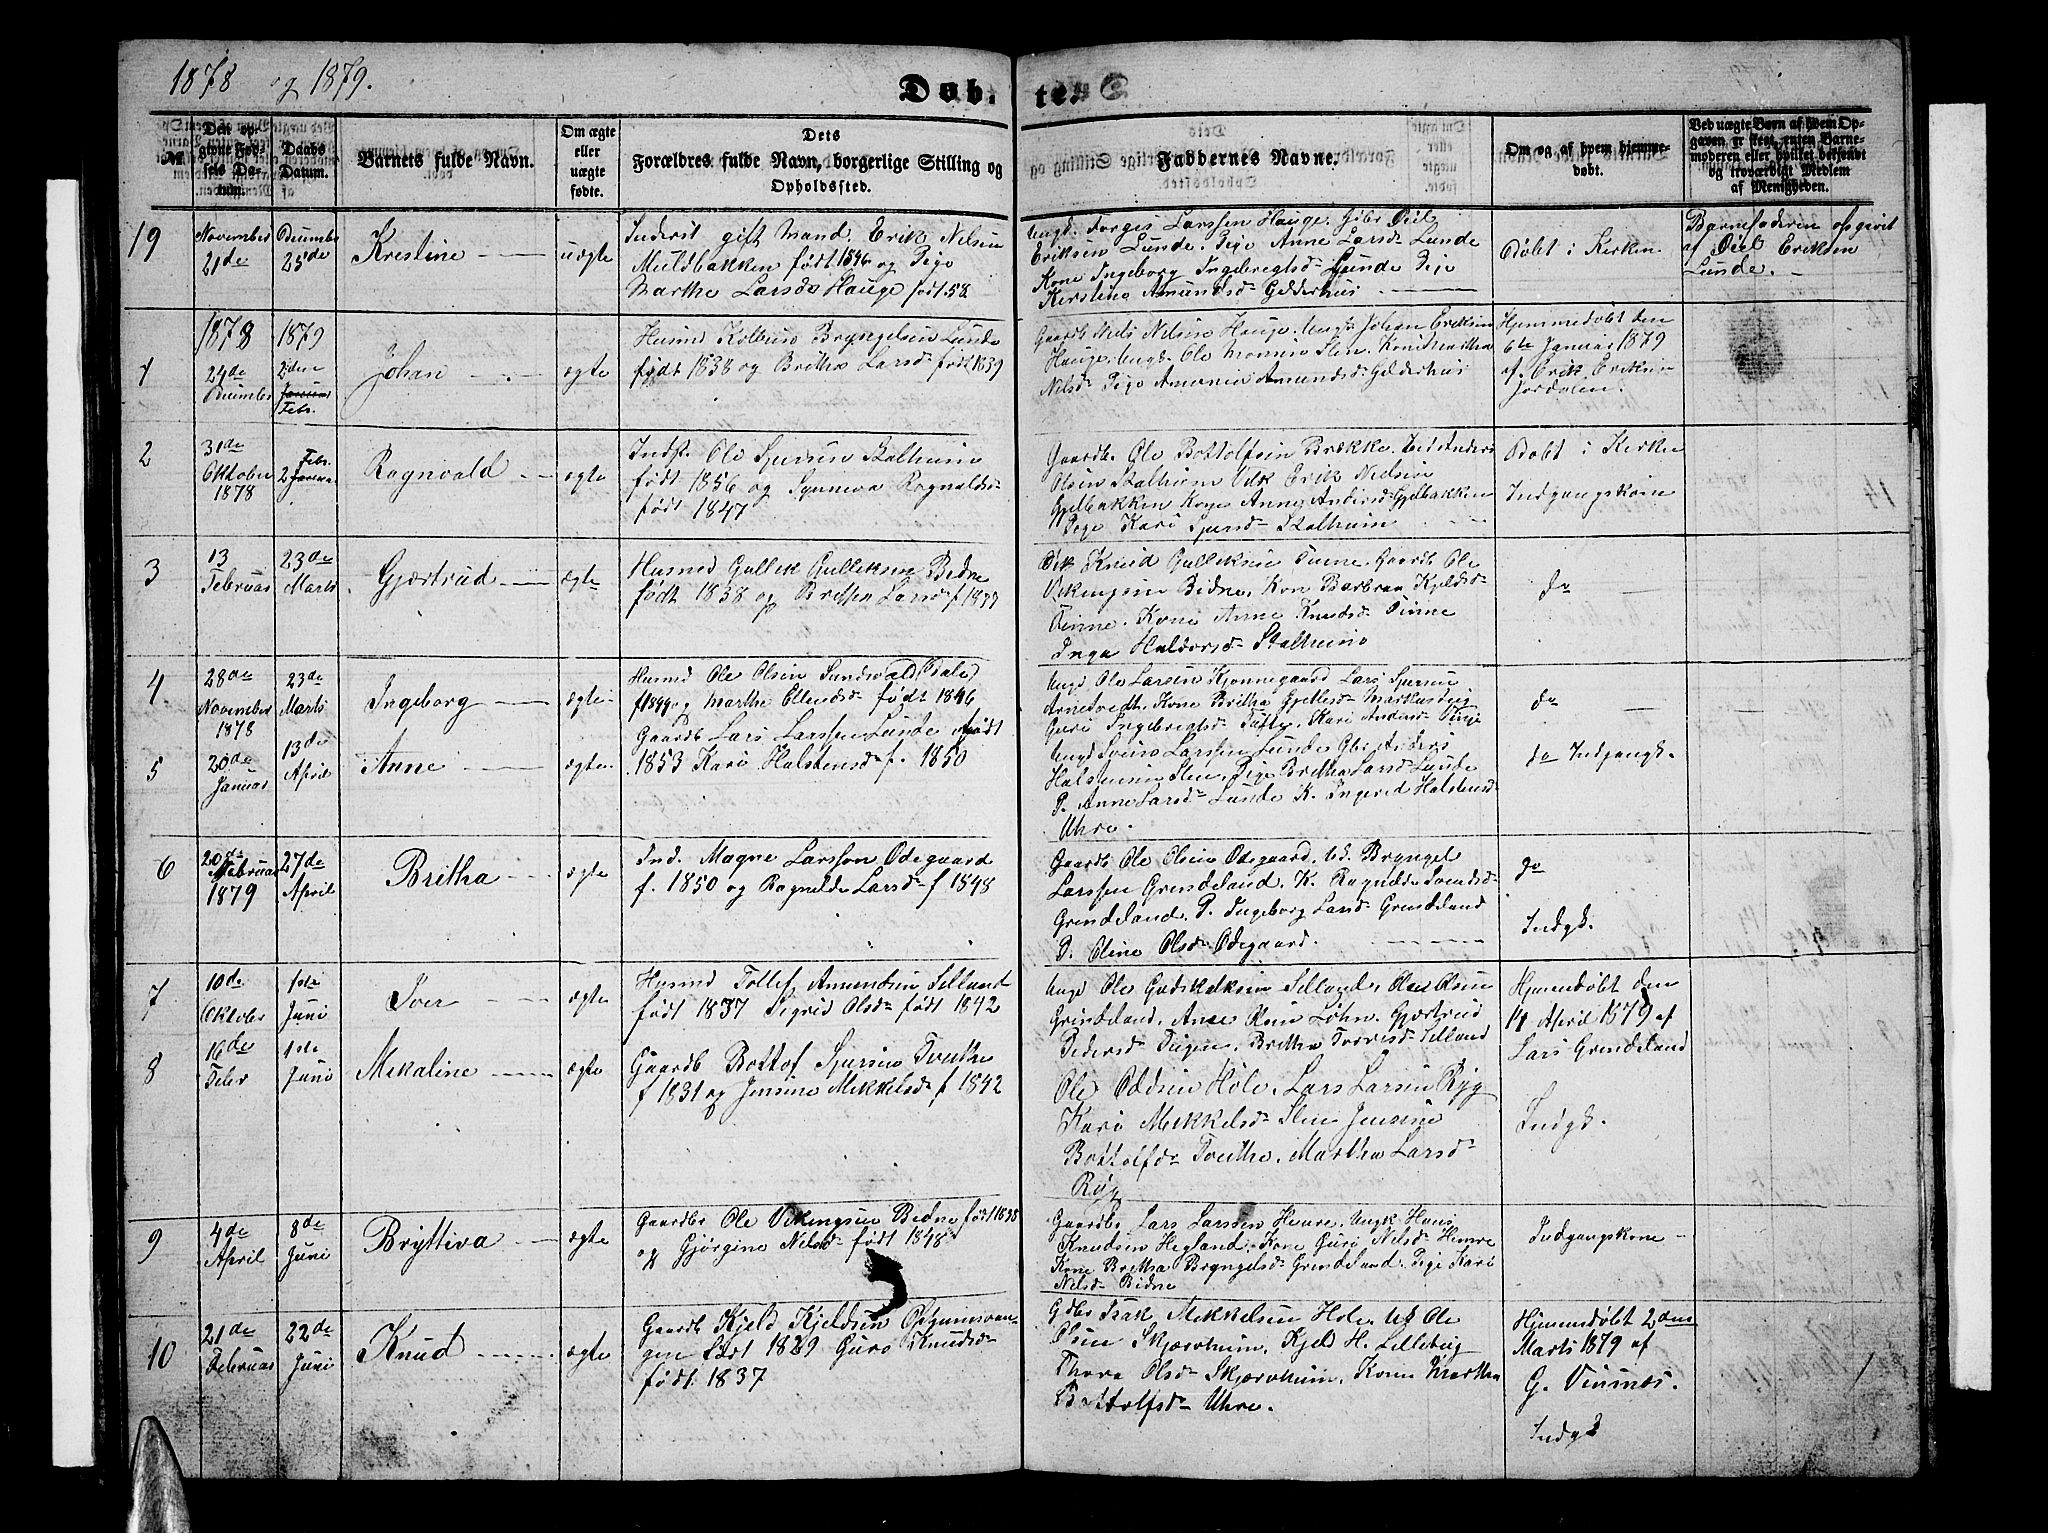 1878 og 1879.
Døb-
te.
№
Den op-
givne Fød-
sels Da-
tum.
Daabs
Datum.
Barnets fulde Navn.
Om ægte
eller
uægte
fødte.
Dets
Forældres fulde Navn, borgerlige Stilling og
Opholdssted.
Faddernes Navne.
Om og af hvem hjemme-
døbt.
Ved uægte Børn af hvem Op-
gaven er skeet, enten Barne-
moderen eller hvilket bekjendt
og troværdigt Medlem
af Menigheden.
19
November
21de
Decembr
25de
Krestine
uægte
gift Mand. Erik Nilsen
Muldbakken født 1846 og Pige
Marthe Larsda Hauge født 58
Ungk Torgeis Larssen Hauge. Gbr Odil
Eriksen Lunde. Pige Anne Larsd Lunde
Kone Ingeborg Ingebregtsd Lunde Pige
Kerstine Amundsd Gelderhus
Døbt i Kirken
Barnefaderen opgivet
af Odil Eriksen
Lunde.
1
1878
24de
Decembr
1879
2den
Febr.
Johan
ægte
Husmd Kolbens Bryngelsen Lunde
født 1838 og Britha Larsd født 1839
Gaardb Nels Nilsen Hauge. Ungk Johan Eriksen
Hauge. Ungk Ole Monsen Slen. Kone Martha
Nelsd Pige Amonia Amundsd Gelderhus
Hjemmedøbt den
6te Januar 1879
af Erik Eriksen
Jordalen.
2
31de
Oktober
1878
2 Febr.
Ragnvald
ægte
Inds. Ole Sjursen Stalheim
født 1856 og Synneva Ragnaldsd
født 1847
Gaardb. Ole Bottolfsen Brække. Anders
Olsen Stalheim Erik Nielsen
Gjelbakken Kone Anne Andersd Gjelbakken
Pige Kari Sjursd Stalheim
Døbt i Kirken
Indgangskone
3
13
Februar
23de
Marts
Gjærtrud
ægte
Husmd Gullek Gulleksen Bidne
født 1838 og Britha Larsd f 1837
Knud Gulleksen Tvinne. Gaardb Ole
Vikingsen Bidne. Kone Barbraa Kjeldsd
Vinne. Kone Anne Knudsd Vinne
Inga Haldorsd Stalheim
do
4
28de
November
1878
23de
Marts
Ingeborg
ægte
Husmd Ole Olsen Sundvald (Dale)
f 1849 og Marthe Ellendsd født 1846
Ungd Ole Larsen Kjønnegaard Lars Sjursen
Arnetvedt. Kone Britha Gjellesd
Guri Ingebregtsd Tufte. Kari Andersd Vinje
do
5
20de
Januar
13de
April
Anne
ægte
Gaardb Lars Larssen Lunde født
1853 Kari Halstensd f. 1850
Ungd Sveins Larssen Lunde Gbr Anders
Halstensen Slen. Pige Britha Larsd Lunde
P. Anne Larsd Lunde K. Ingerid Halstensd
Uhre.
do Indgangk.
6
20de
Februar
1879
27de
April
Britha
ægte
Ind. Magne Larsson Ødegaard
f. 1850 og Ragnilda Larsd f 1848
Gaardb Ole Olsen Ødegaard. Bryngel
Larssen Grindeland. K. Ragnilda Svendsd
Grindeland. P. Ingeborg Larsd Grindeland
P. Oline Olsd Ødegaard.
do
Indgk.
7
10de
Oktober
1ste
Juni
Iver
ægte
Husmd Tollef Amundsen Selland
født 1837 Sigrid Olsd født 1842
Ungd Ole Gudskalksen Selland. Ole Olsen
Grindeland. Anne Olsen Løhn. Gjærtrud
Pedersd. Britha Torresd Selland
Hjemmedøbt den
14 April 1879 af
Lars Grindeland
8
16de
Febr
1ste
Juni
Mekaline
ægte
Gaardb Bottof Sjursen Tveithe
f 1831 og Jensine Mekkelsd f 1842
Ole Oddsen Hole. Lars Larsen Ryg
Kari Mekkelsd Slen Jensine
Bottolfsd Tveithe. Martha Larsd
Ryg
Indgk.
9
4de
April
8de
Juni
Bryttiva
ægte
Gaardbr Ole Vikingsen Bidne født 1838
og Gjørgine Nelsd født 1848
Gaardb Lars Larssen Hemre. Ungk Hans
Knudsen Hegland. Kone Guro Nelsd Hemre
Kone Britha Bryngelsd Grindeland. Pige Kari
Nelsd Bidne
Indgangskone
10
21de
Februar
22de
Juni
Knud
ægte
Gaardb Kjeld Kjeldsen Opheimsvan-
gen født 1829 Guro Knudsd
født 1837
Gdbr Isak Mekkelsen Hole. Uk Ole
Olsen Skjærvheim. Kjeld H. Lilleteig
Thora Olsd Skjærvheim. Kone Martha
Bottolfsd Uhre.
Hjemmedøbt 2den
Marts 1879 af
G. Vinmæs.
Indgk